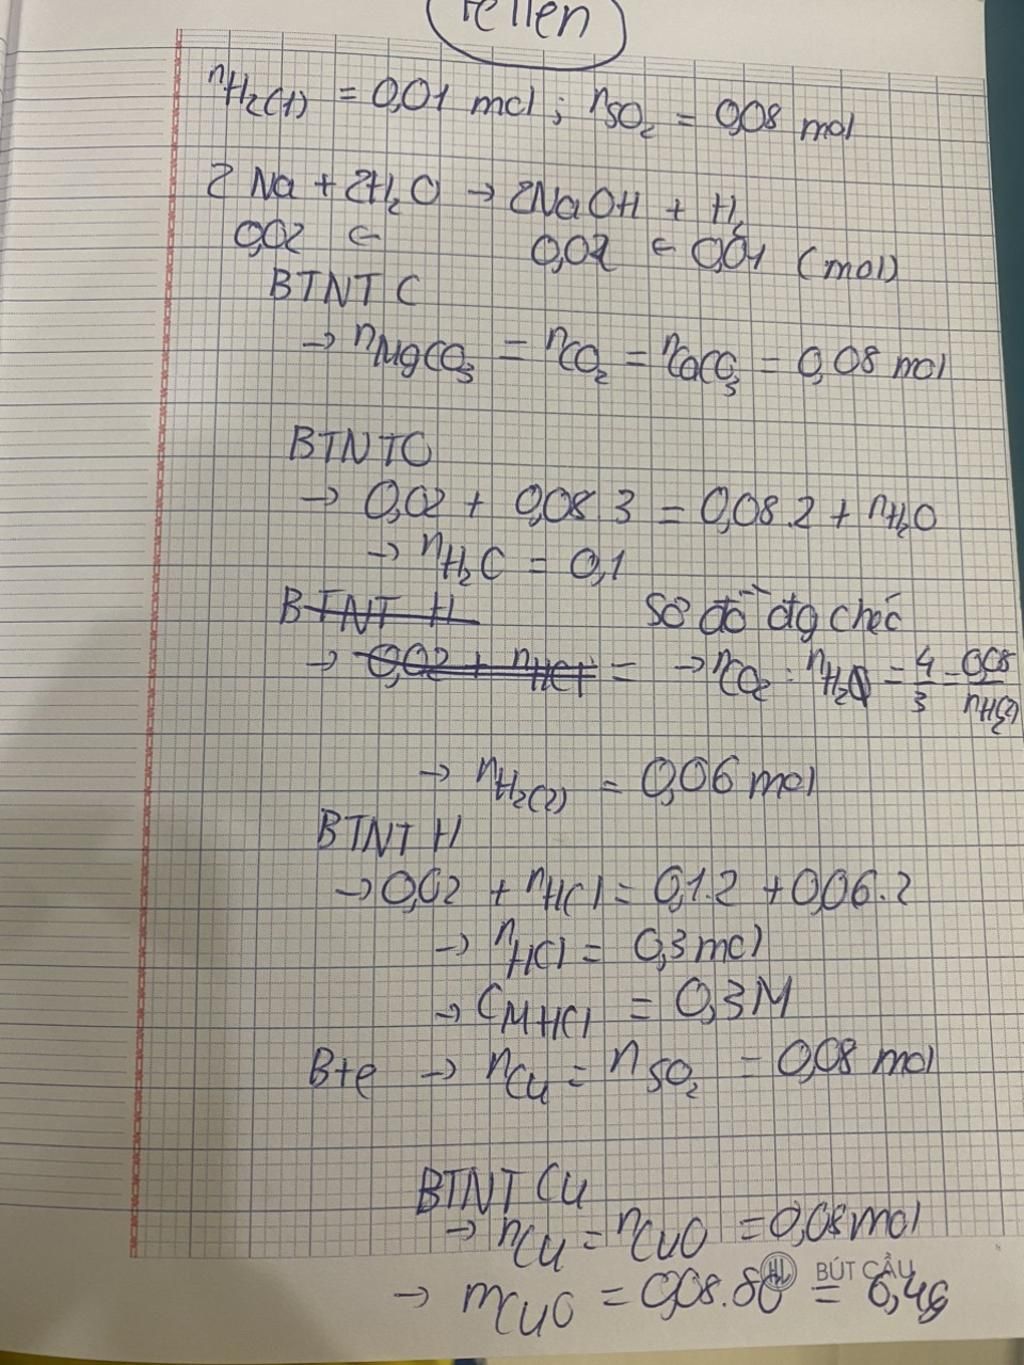 rellen
nH₂(1) = 0,01 mol ; nSO₂ = 0,08 mol
2Na + 2H₂O → 2NaOH + H₂
0,02 ← 0,02 ← 0,01 (mol)
BTNT C
→ nMgCO₃ = nCO₂ = nCaCO₃ = 0,08 mol
BTNT O
→ 0,02 + 0,08.3 = 0,08.2 + nH₂O
→ nH₂O = 0,1
BTNT H sơ đồ đg chéo
→ 0,02 + nHCl = → nCO₂ : nH₂ = 4/3 = 0,08/nH₂(2)
→ nH₂(2) = 0,06 mol
BTNT H
→ 0,02 + nHCl = 0,1.2 + 0,06.2
→ nHCl = 0,3 mol
→ CM HCl = 0,3M
Bte → nCu = nSO₂ = 0,08 mol
BTNT Cu
→ nCu = nCuO = 0,08 mol
→ mCuO = 0,08.80 = 6,4g
BÚT CẦU